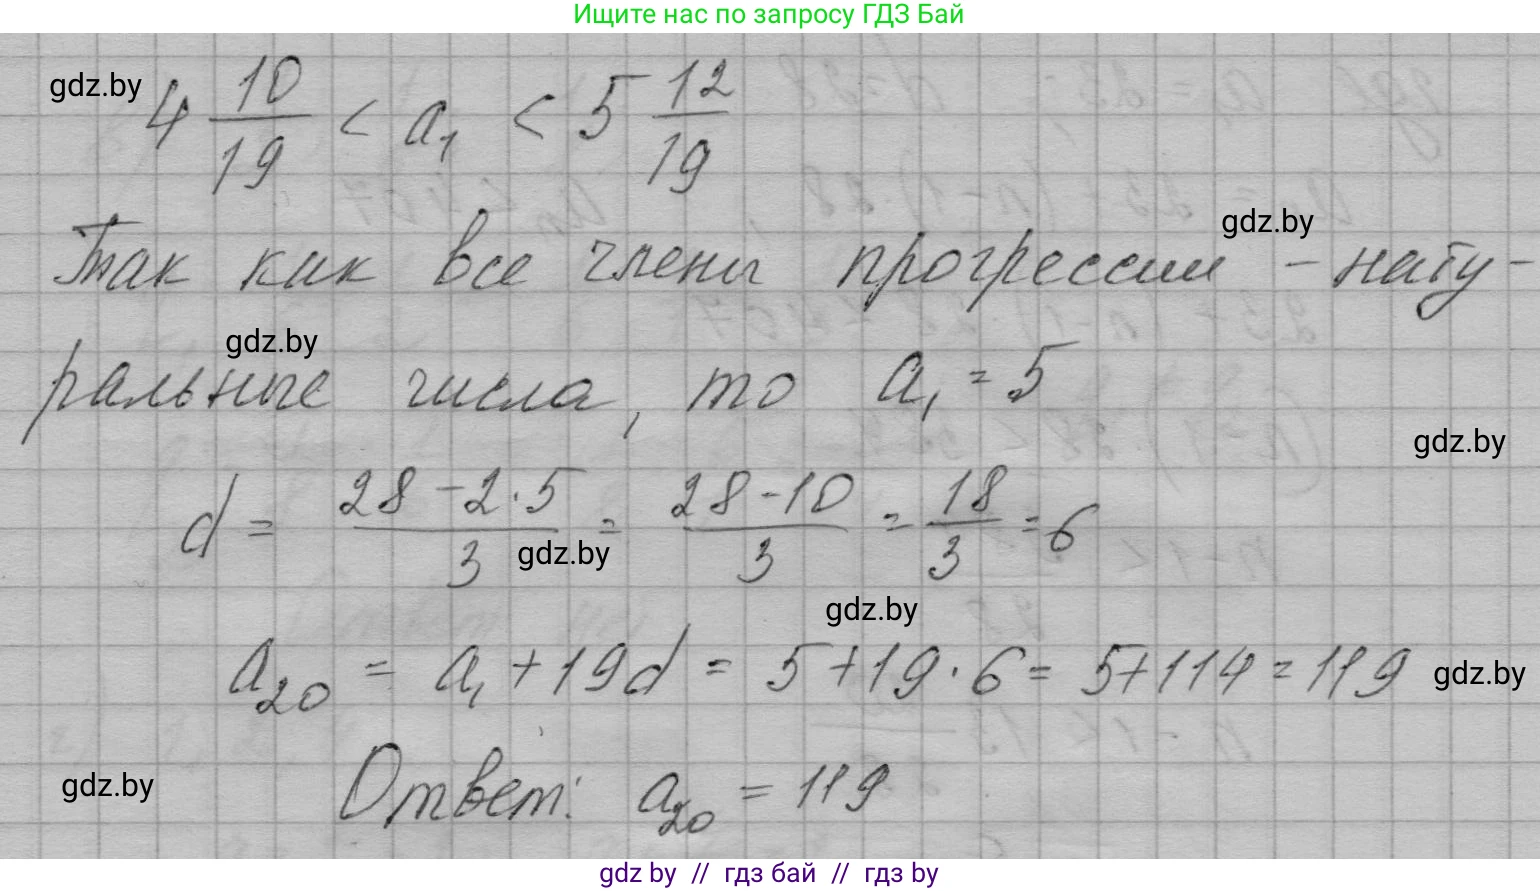 Ищите нас по запросу ГДЗ Бай
gdz.by
4 10/19 < a₁ < 5 12/19
gdz.by
Так как все члены прогрессии – нату-
gdz.by
ральные числа, то a₁ = 5
gdz.by
d = (28 – 2·5)/3 = (28 – 10)/3 = 18/3 = 6
gdz.by
gdz.by
a₂₀ = a₁ + 19d = 5 + 19·6 = 5 + 114 = 119
gdz.by
gdz.by
Ответ: a₂₀ = 119
gdz by // гдз бай // гдз by